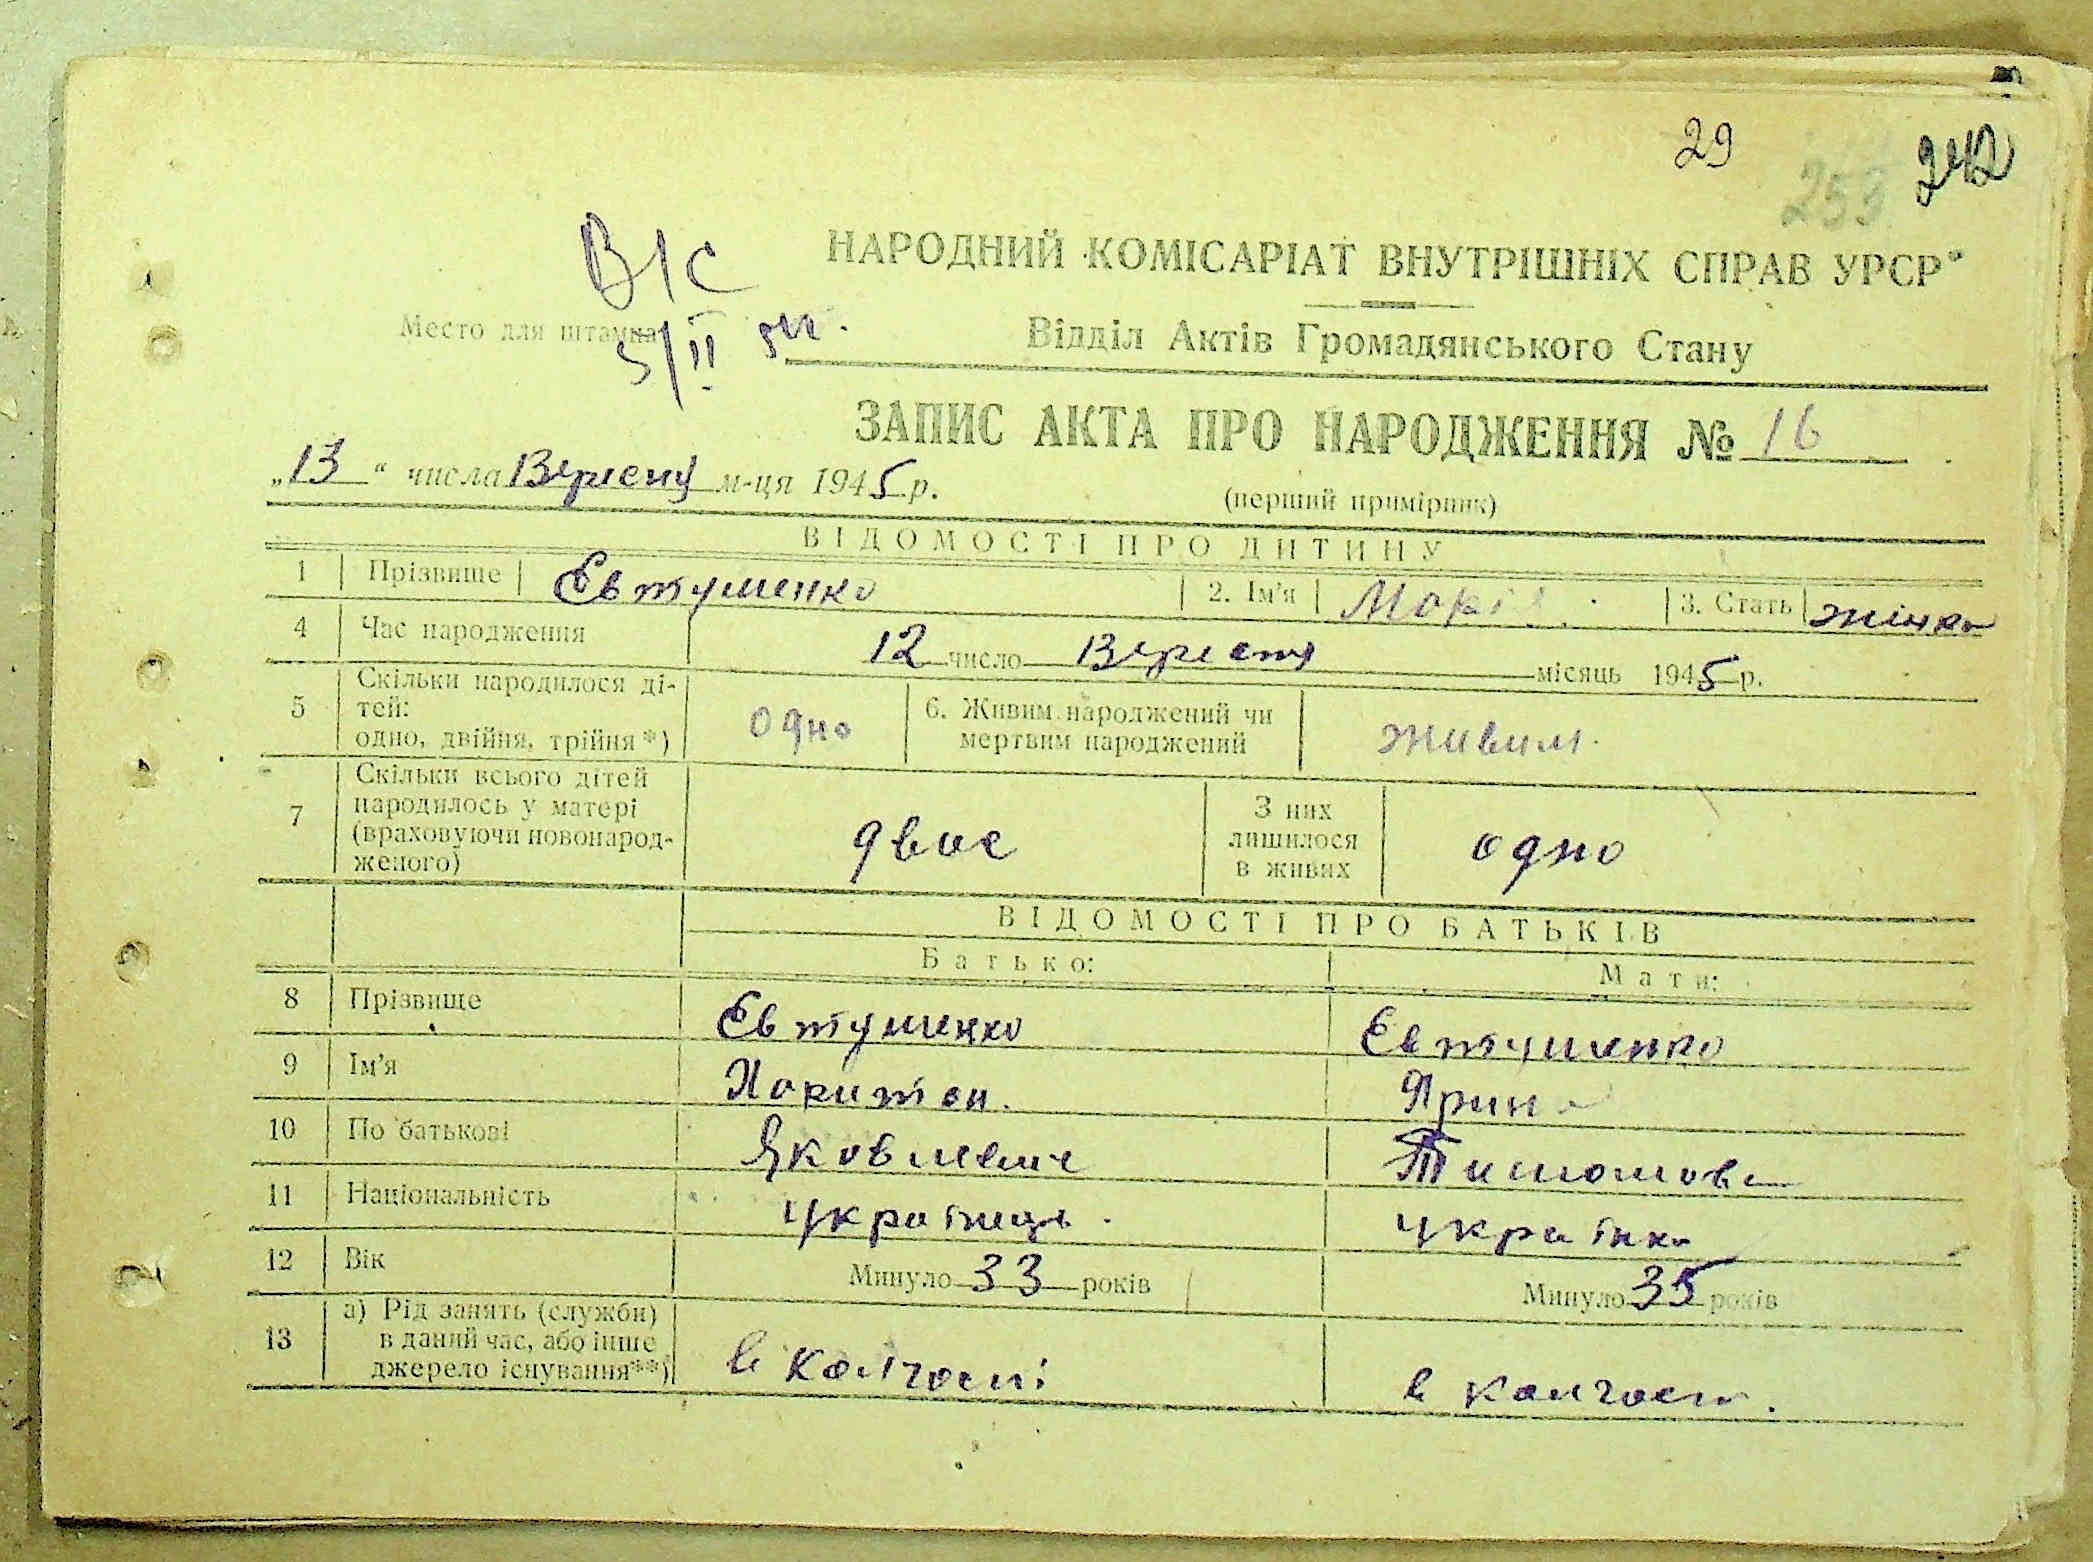 29
253 242
В/с
НАРОДНИЙ КОМІСАРІАТ ВНУТРІШНІХ СПРАВ УРСР
Место для штампа
5/II
Відділ Актів Громадянського Стану
ЗАПИС АКТА ПРО НАРОДЖЕННЯ № 16
„13“ числа Вересня м-ця 1945 р.
(перший примірник)
ВІДОМОСТІ ПРО ДИТИНУ
1 Прізвище Євтушенко 2. Ім'я Марія 3. Стать жінка
4 Час народження 12 число Вересня місяць 1945 р.
5 Скільки народилося ді-
тей:
одно, двійня, трійня*) одно 6. Живим народжений чи
мертвим народжений живим.
7 Скільки всього дітей
народилось у матері
(враховуючи новонарод-
женого) двоє З них
лишилося
в живих одно
ВІДОМОСТІ ПРО БАТЬКІВ
Батько: Мати:
8 Прізвище Євтушенко Євтушенко
9 Ім'я Харитон. Ярина
10 По батькові Яковлевич Тимошова
11 Національність українець. українка
12 Вік Минуло 33 років Минуло 35 років
13 а) Рід занять (служби)
в даний час, або інше
джерело існування**) в колгоспі в колгосп.